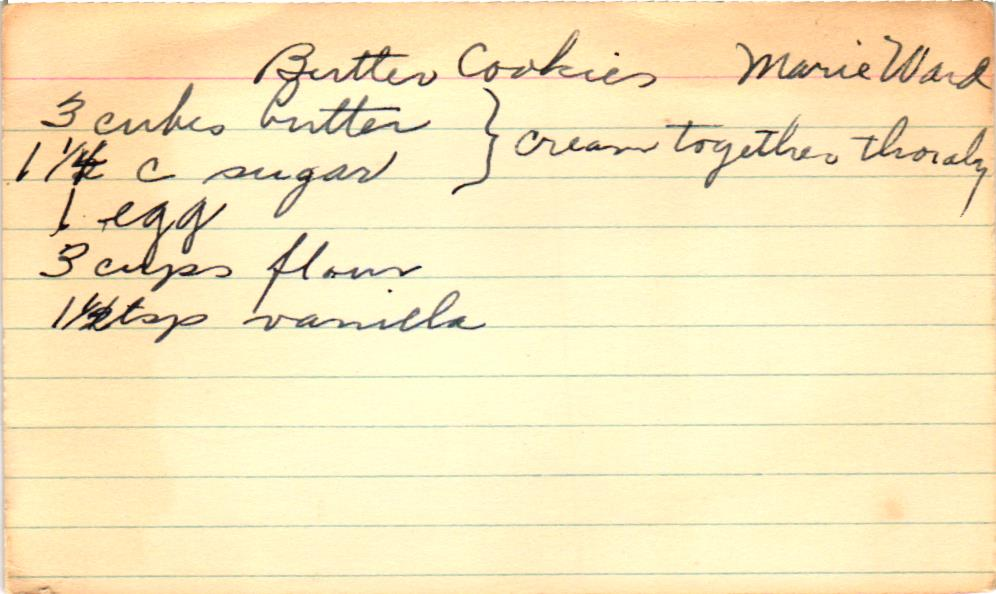 Butter Cookies Marie Ward
3 cubes butter
1 1/4 c sugar } cream together thoraly
1 egg
3 cups flour
1 1/2 tsp vanilla